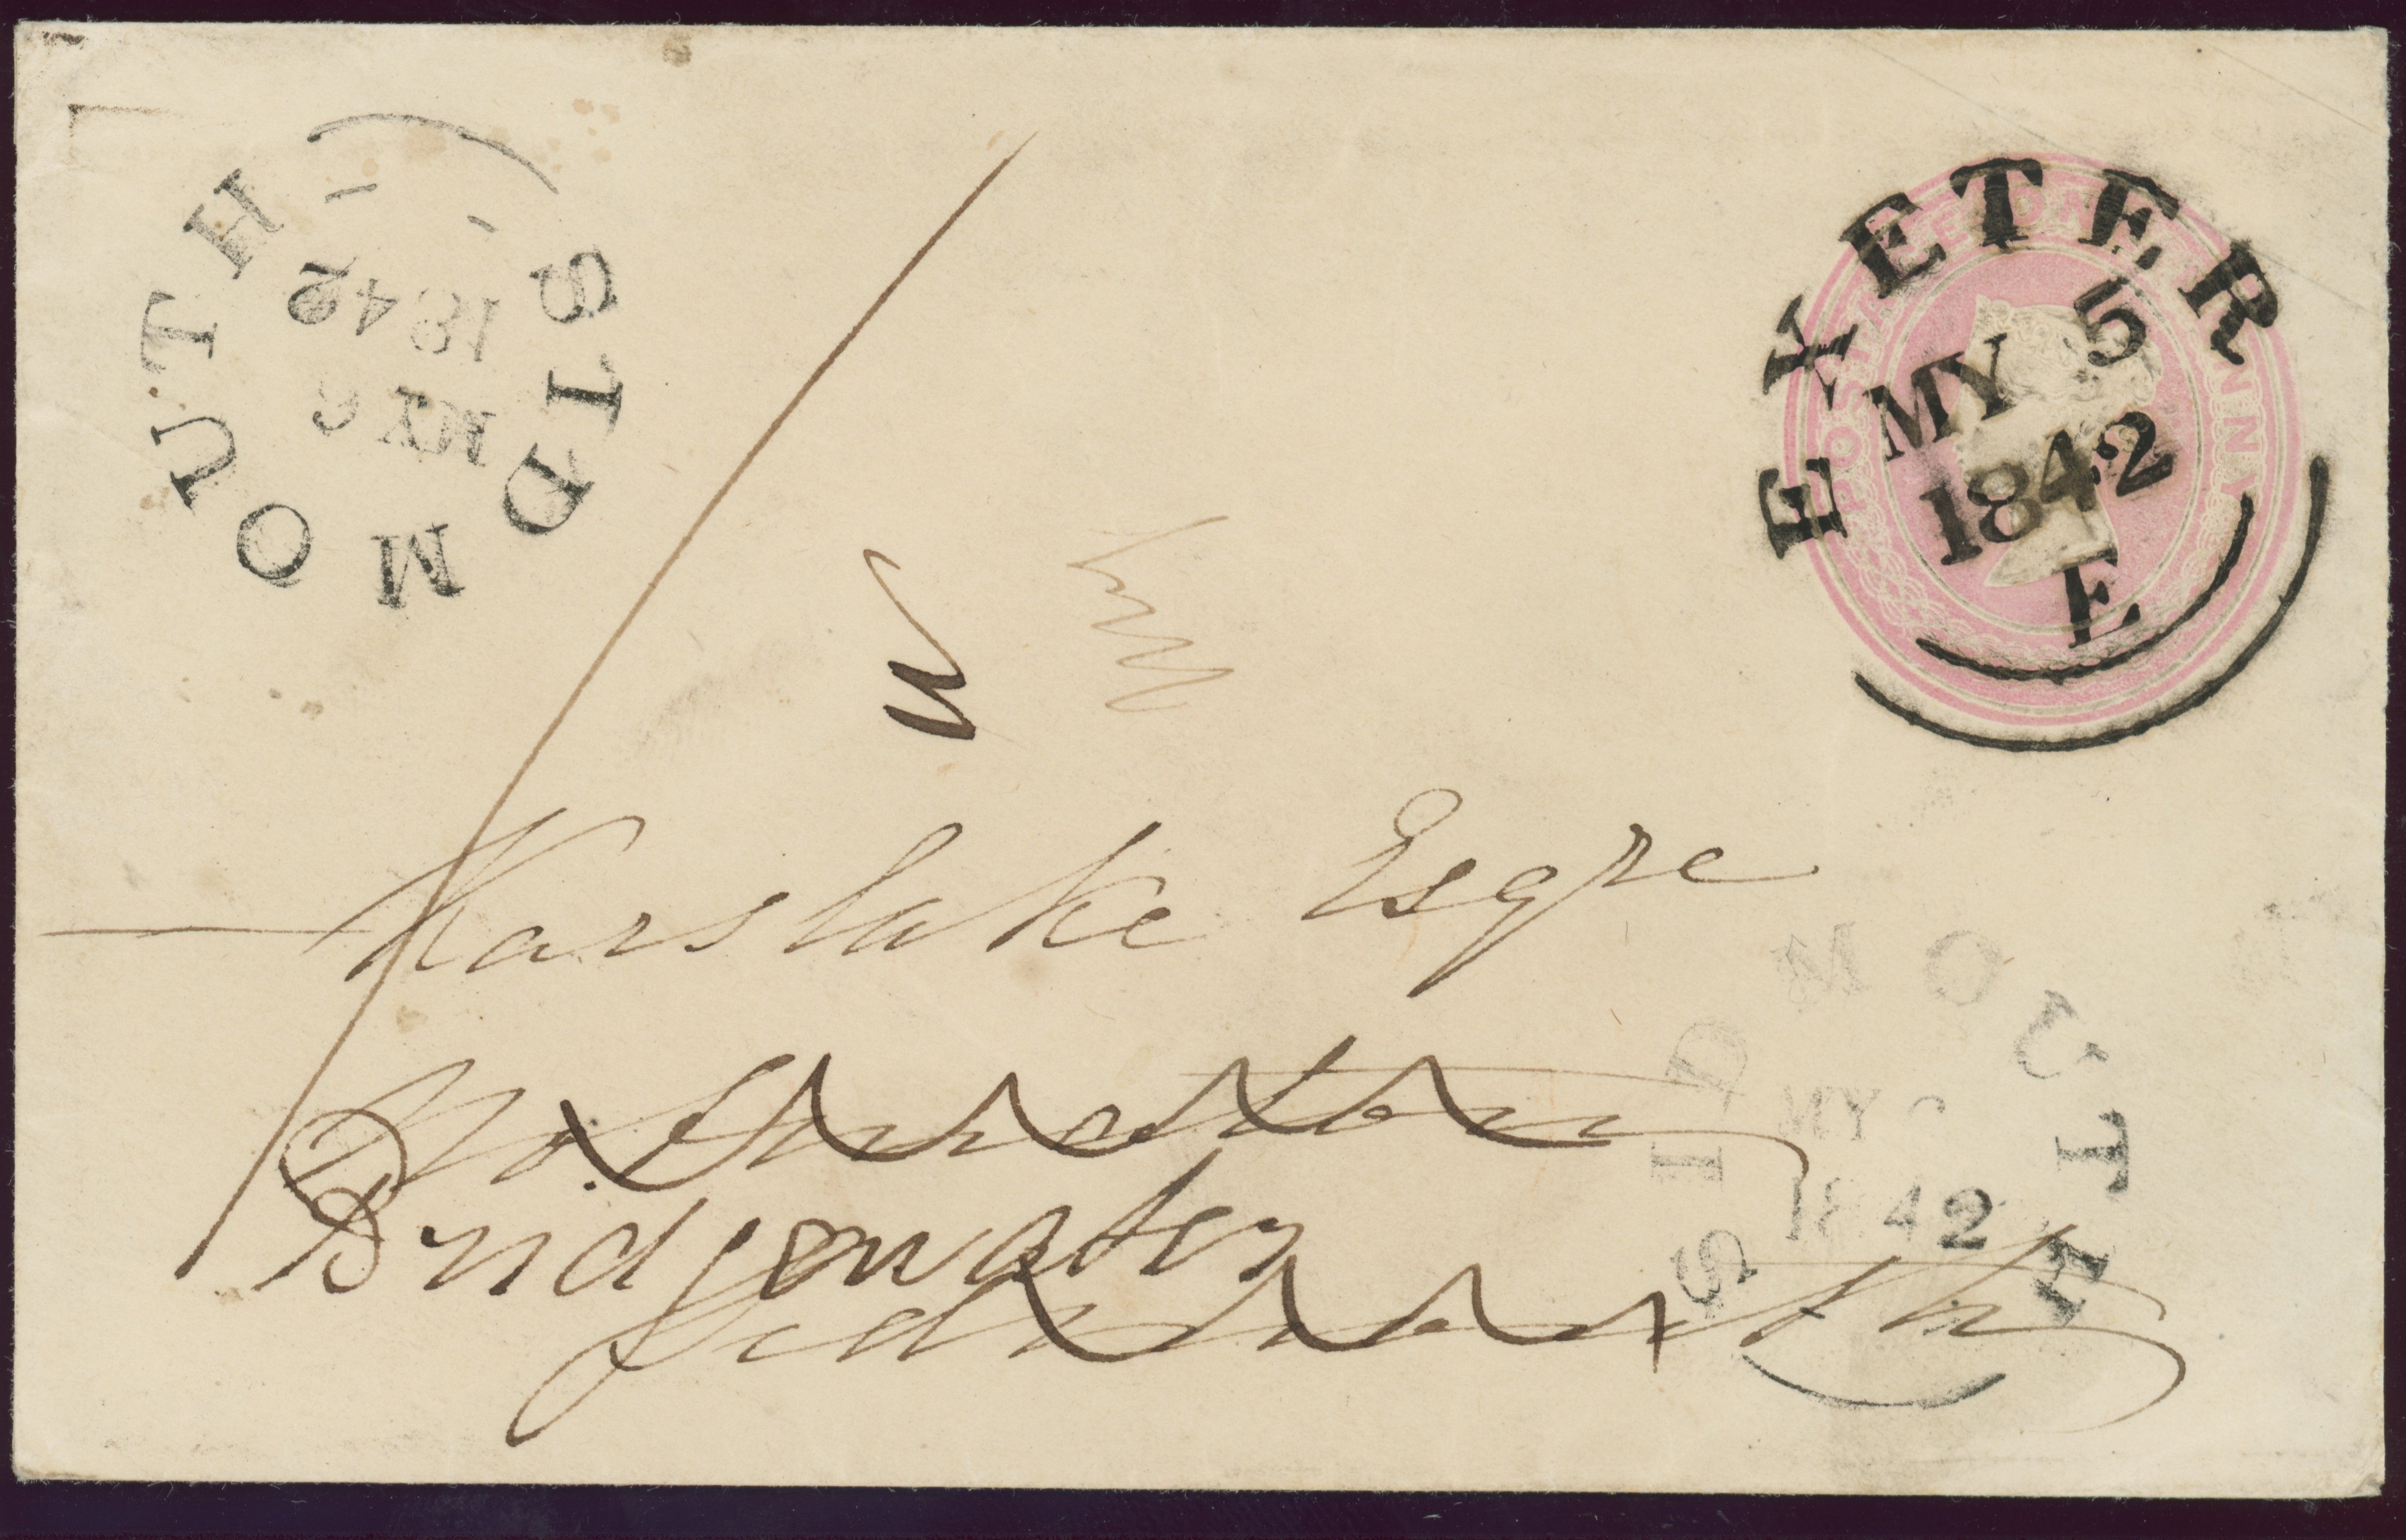 SIDMOUTH
MY 6
1842
EXETER
MY 5
1842
E
POSTAGE ONE PENNY
Karslake Esqre
Bridgewater
Sidmouth
SIDMOUTH
MY
1842